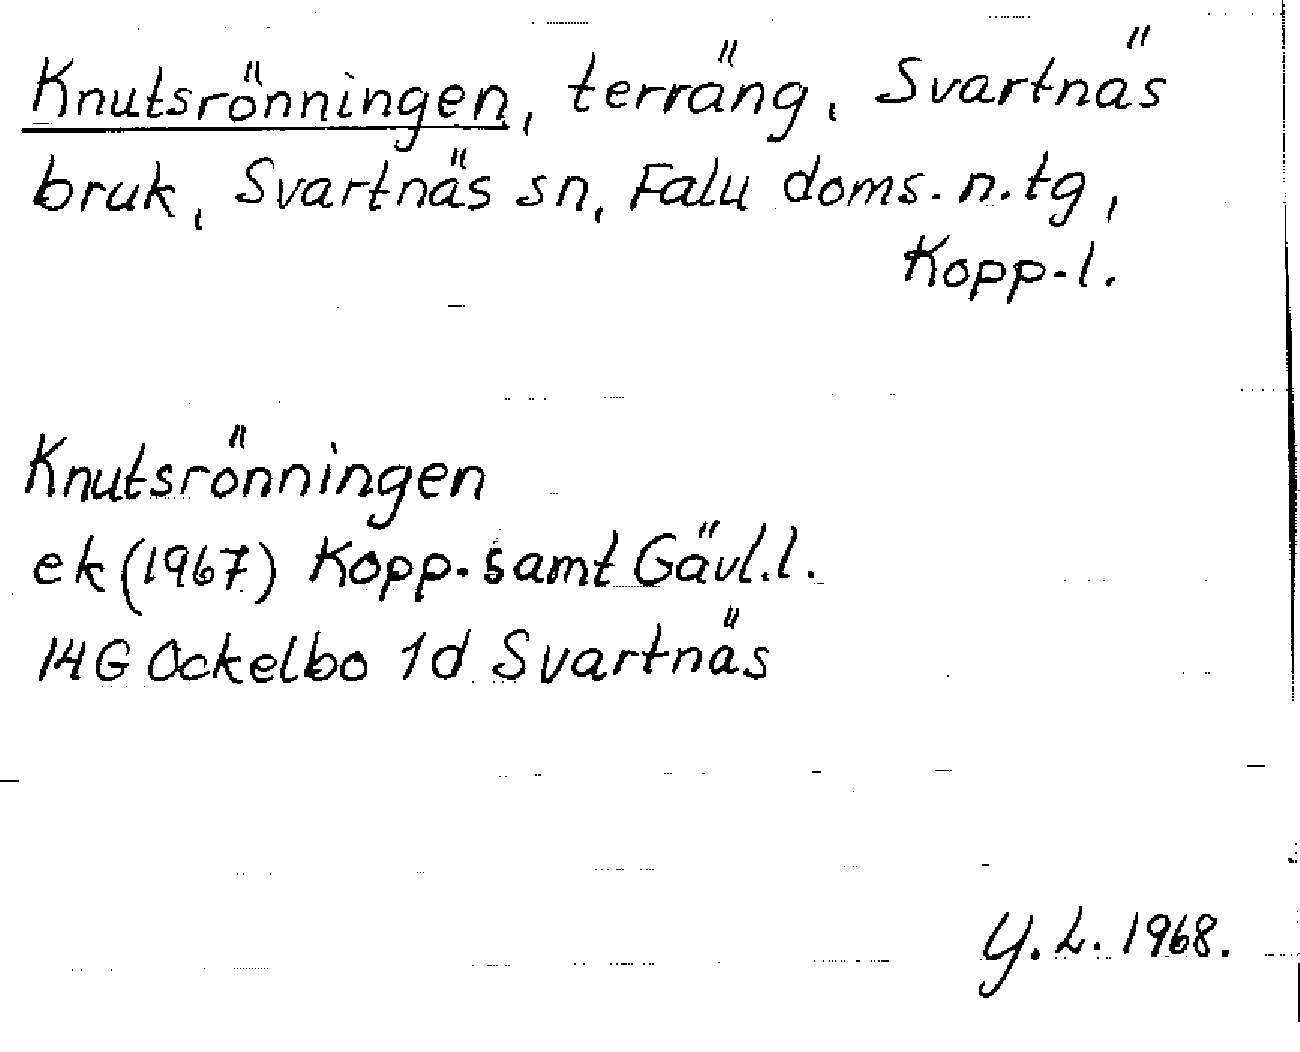 Knutsrönningen, terräng, Svartnäs
bruk, Svartnäs sn, Falu doms. n. tg,
Kopp-l.
Knutsrönningen
ek (1967) Kopp. samt Gävl.l.
14G Ockelbo 1d Svartnäs
Y. L. 1968.